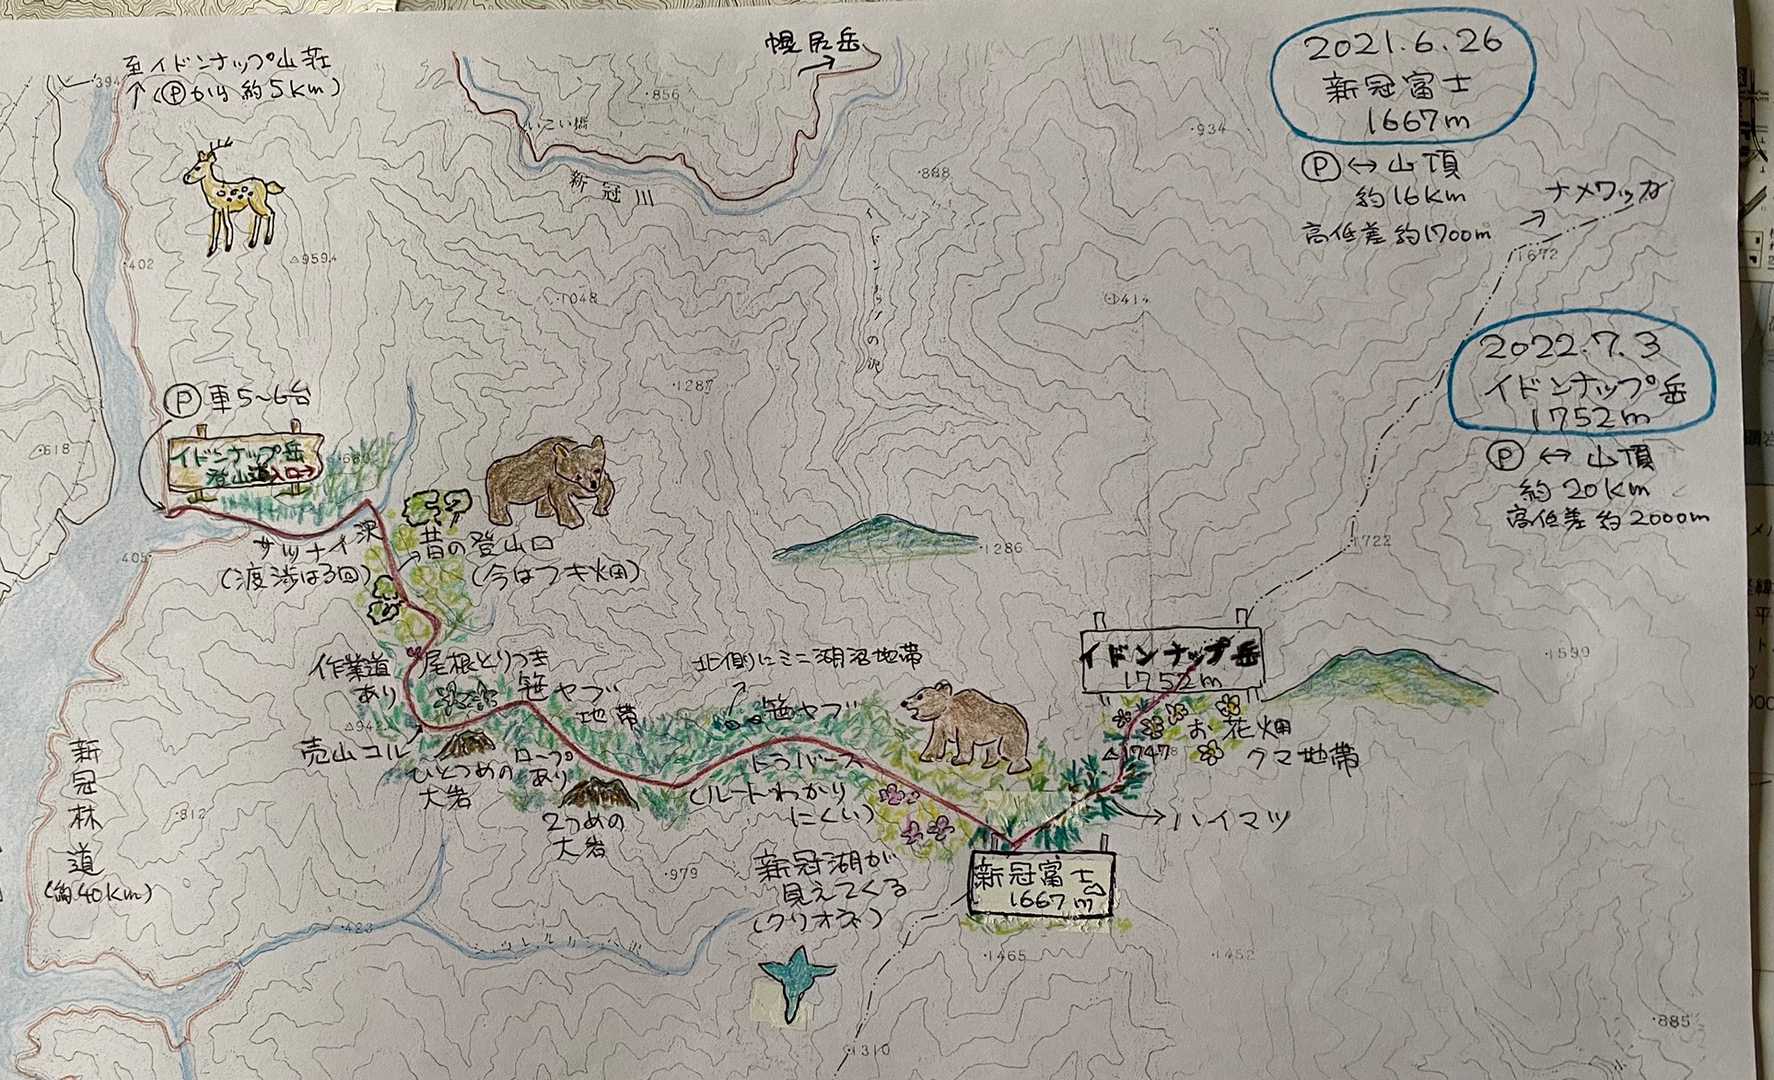 至イドンナップ山荘
↑(Ⓟから約5Km)
幌尻岳
2021.6.26
新冠富士
1667m
Ⓟ↔山頂
約16Km
高低差約1700m
ナメワッカ
2022.7.3
イドンナップ岳
1752m
Ⓟ↔山頂
約20Km
高低差約2000m
394
・856
いこい橋
新冠川
・934
・888
・402
△959.4
・1048
1672
の沢
・1287
Ⓟ車5~6台
イドンナップ岳
登山道入口→
・618
サツナイ沢
(渡渉は3回)
昔の登山口
(今はフキ畑)
405
・1286
・1722
作業道
あり
尾根とりつき
笹ヤブ
地帯
北側にミニ湖沼地帯
笹ヤブ
イドンナップ岳
1752m
・1599
お花畑
クマ地帯
△1747
売山コル
ひとつめの
大岩
ロープ
あり
2つめの
大岩
トラバース
(ルートわかり
にくい)
→ハイマツ
新冠林道
(約40Km)
・812
・979
新冠湖が
見えてくる
(クリオネ)
新冠富士
1667m
・423
・1465
・1452
・885
・1310